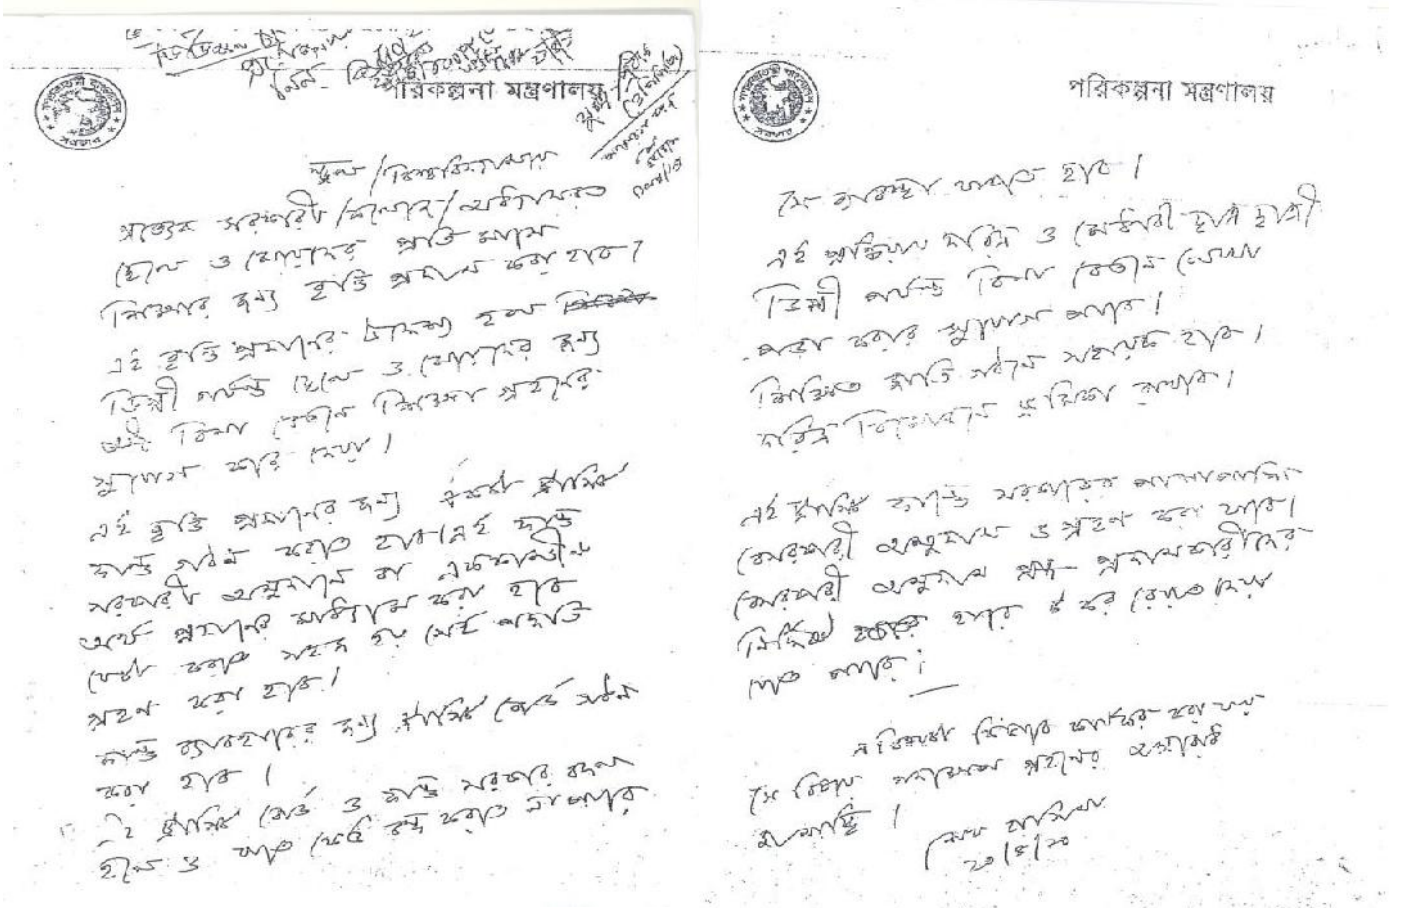 পরিকল্পনা মন্ত্রণালয়
স্কুল / বিশ্ববিদ্যালয়
প্রত্যেক সরকারী / কলেজে / অধ্যয়নরত
ছেলে ও মেয়েদের প্রতি মাসে
শিক্ষার জন্য বৃত্তি প্রদান করা হবে।
এই বৃত্তি প্রদানের উদ্দেশ্য হল
ডিগ্রী পর্যন্ত ছেলে ও মেয়েদের জন্য
বিনা বেতনে শিক্ষা গ্রহনের
সুযোগ করে দেয়া।
এই বৃত্তি প্রদানের জন্য একটা ট্রাস্টি
ফান্ড গঠন করতে হবে। এই ফান্ড
সরকারী অনুদানে বা এককালীন
অর্থ প্রদানের মাধ্যমে করা হবে
যেটা করতে সহজ হয় সেই পদ্ধতি
গ্রহণ করা হবে।
ফান্ড ব্যবহারের জন্য ট্রাস্টি বোর্ড গঠন
করা হবে।
এই ট্রাস্টি বোর্ড ও ফান্ড সরকার বদল
হলে ও যাতে কেউ বন্ধ করতে না পারে
পরিকল্পনা মন্ত্রণালয়
সে ব্যবস্থা থাকতে হবে।
এই প্রক্রিয়ায় দরিদ্র ও মেধাবী ছাত্র ছাত্রী
ডিগ্রী পর্যন্ত বিনা বেতনে লেখা
পড়া করার সুযোগ পাবে।
শিক্ষিত জাতি গঠনে সহায়ক হবে।
দারিদ্র বিমোচনে ভূমিকা রাখবে।
এই ট্রাস্টি ফান্ডে সরকারের পাশাপাশি
বেসরকারী অনুদান ও গ্রহণ করা যাবে।
বেসরকারী অনুদান প্রদানকারীদের
নির্দিষ্ট হারে কর রেয়াত দেয়া
যেতে পারে।
এ বিষয়টা কিভাবে কার্যকর করা যায়
সে বিষয়ে পদক্ষেপ গ্রহনের অনুরোধ
জানাচ্ছি।
শেখ হাসিনা